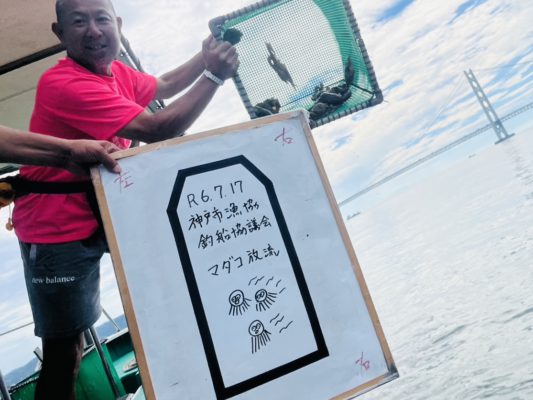 左
右
R6.7.17
神戸市漁協
釣船協議会
マダコ放流
右
new balance